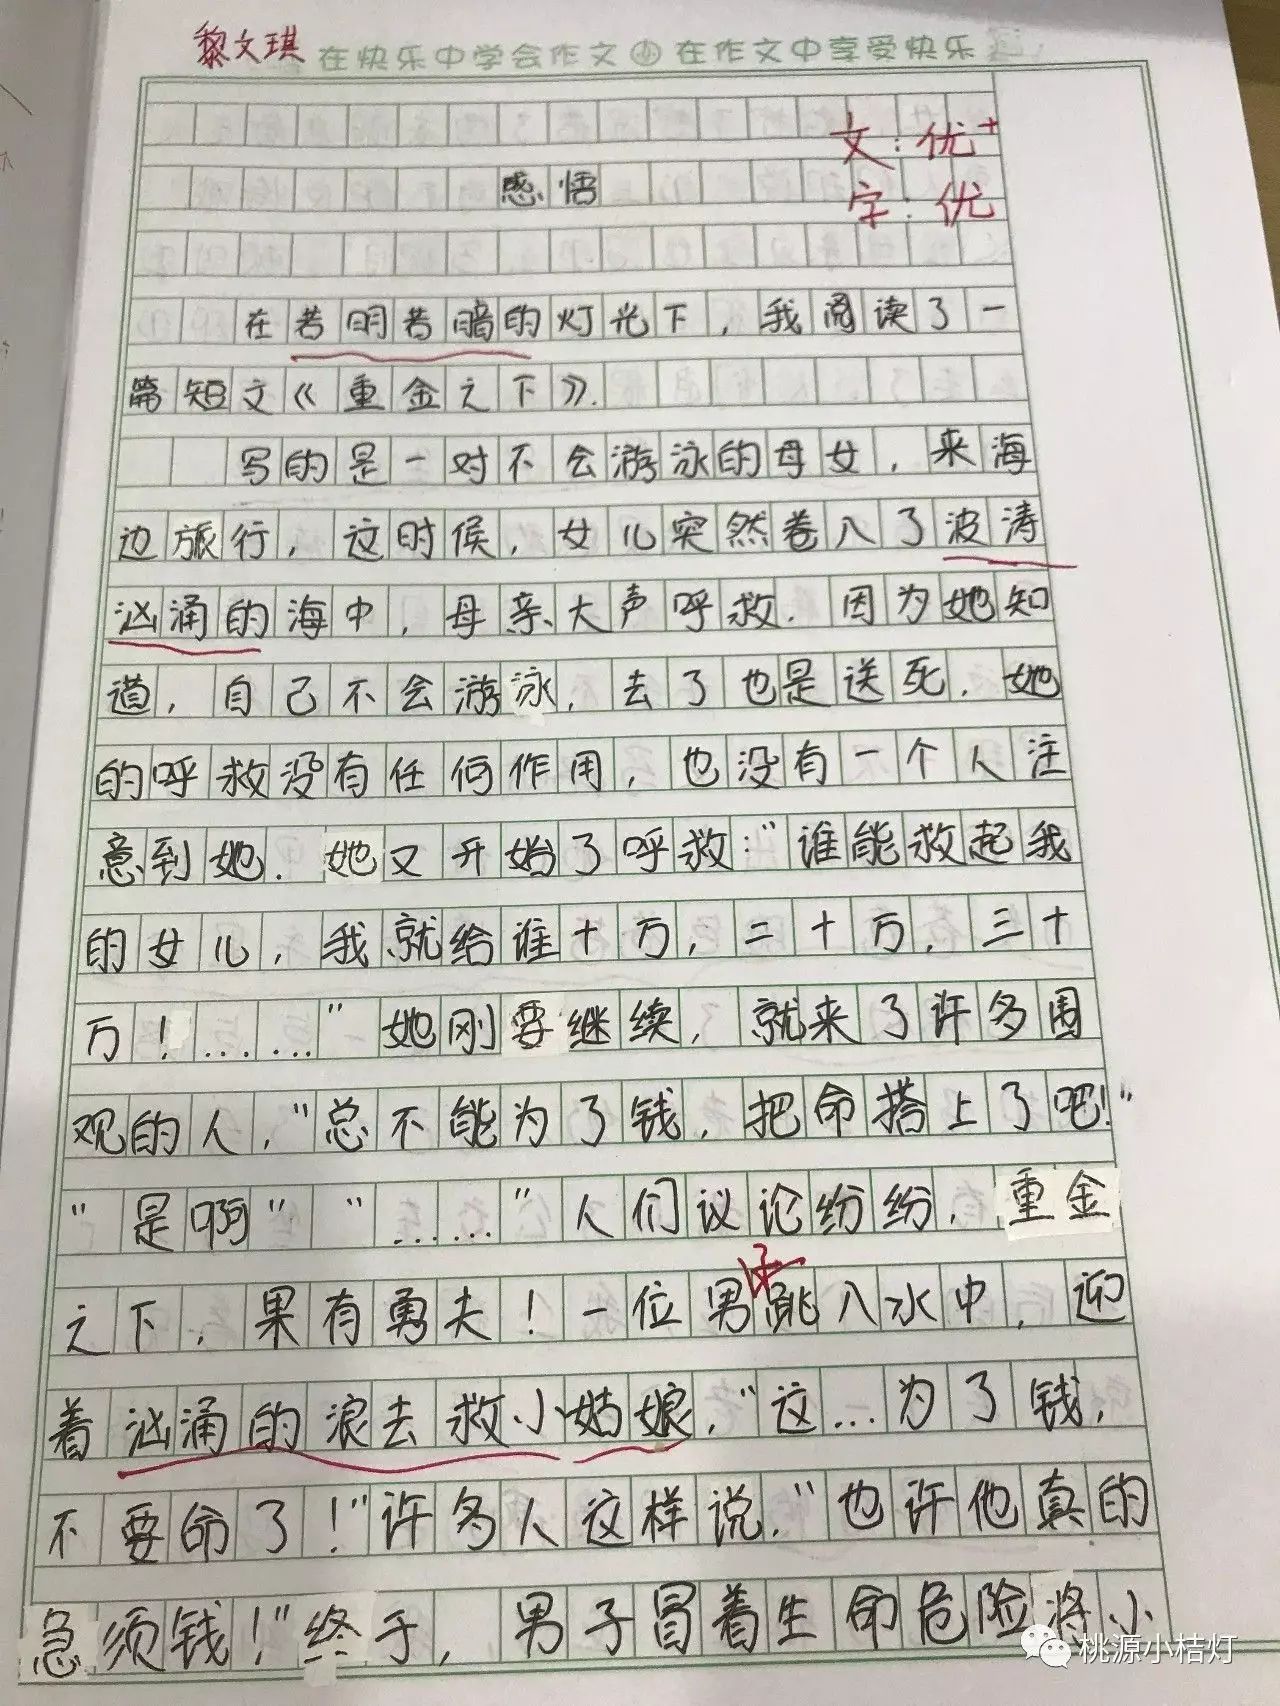 黎文琪 在快乐中学会作文 在作文中享受快乐
文:优+
感悟
字:优
在若明若暗的灯光下，我阅读了一
篇短文《重金之下》.
写的是一对不会游泳的母女，来海
边旅行，这时候，女儿突然卷入了波涛
汹涌的海中，母亲大声呼救.因为她知
道，自己不会游泳，去了也是送死.她
的呼救没有任何作用，也没有一个人注
意到她.她又开始了呼救:"谁能救起我
的女儿，我就给谁十万，二十万，三十
万！……"她刚要继续，就来了许多围
观的人，"总不能为了钱，把命搭上了吧！"
"是啊""……"人们议论纷纷.重金
之下，果有勇夫！一位男子跳入水中，迎
着汹涌的浪去救小姑娘，"这…为了钱，
不要命了！"许多人这样说，"也许他真的
急须钱！"终于，男子冒着生命危险将小
桃源小桔灯